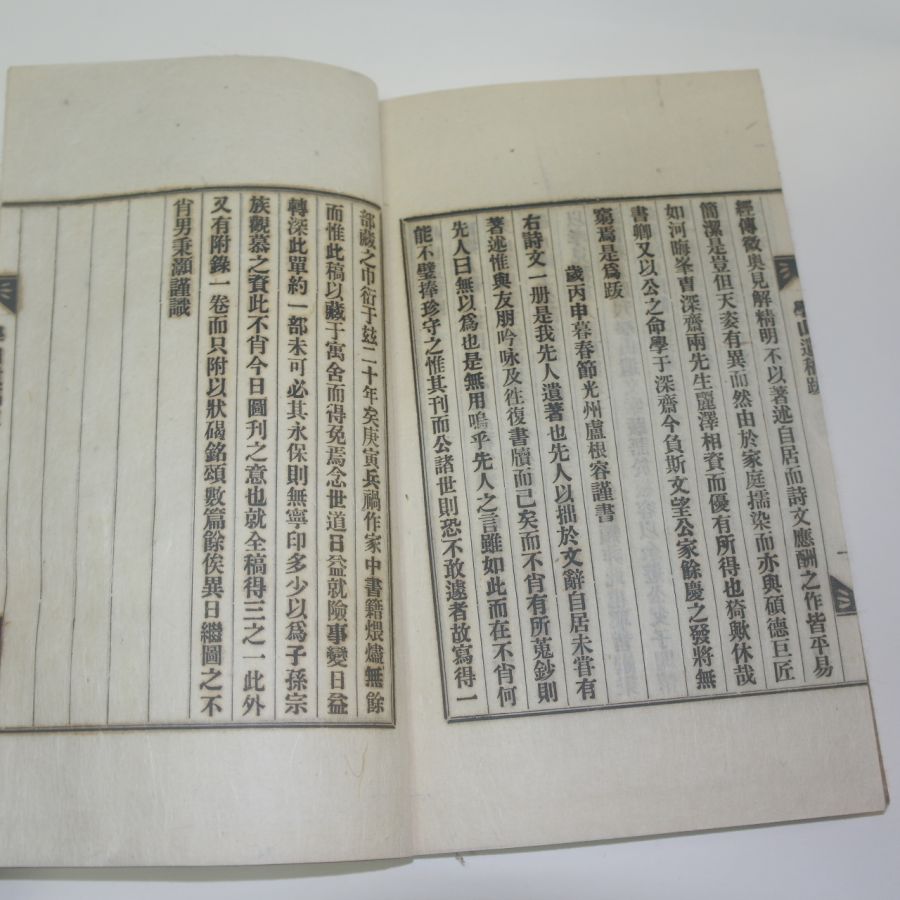 學山遺稿跋
經傳微奧見解精明不以著述自居而詩文應酬之作皆平易
簡潔是豈但天姿有異而然由於家庭擩染而亦與碩德巨匠
如河晦峯曺深齋兩先生麗澤相資而優有所得也猗歟休哉
書卿又以公之命學于深齋今負斯文望公家餘慶之發將無
窮焉是爲跋
歲丙申暮春節光州盧根容謹書
右詩文一册是我先人遺著也先人以拙於文辭自居未甞有
著述惟與友朋吟咏及徃復書牘而已矣而不肖有所蒐鈔則
先人曰無以爲也是無用嗚乎先人之言雖如此而在不肖何
能不璧捧珍守之惟其刊而公諸世則恐不敢遽者故寫得一
部藏之巾衍于玆二十年矣庚寅兵禍作家中書籍煨燼無餘
而惟此稿以藏于寓舍而得免焉念世道日益就險事變日益
轉深此單約一部未可必其永保則無寧印多少以爲子孫宗
族觀慕之資此不肖今日圖刊之意也就全稿得三之一此外
又有附錄一卷而只附以狀碣銘頌數篇餘俟異日繼圖之不
肖男秉灝謹識